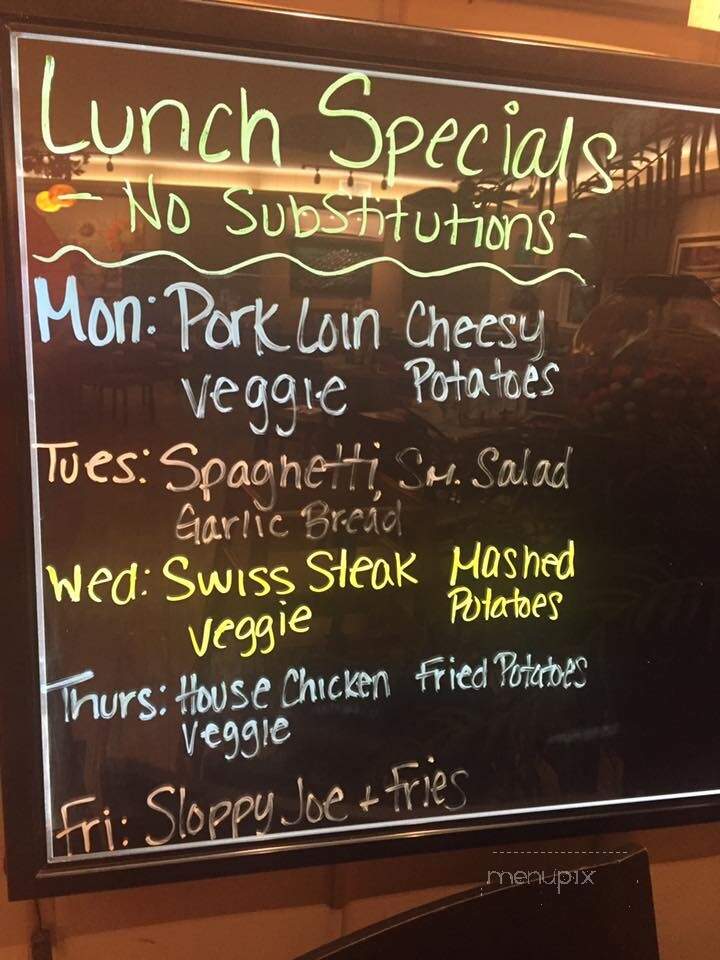 Lunch Specials
- No Substitutions -
Mon: Pork Loin Cheesy
veggie Potatoes
Tues: Spaghetti, Sm. Salad
Garlic Bread
Wed: Swiss Steak Mashed
veggie Potatoes
Thurs: House Chicken Fried Potatoes
veggie
Fri: Sloppy Joe + Fries
menupix